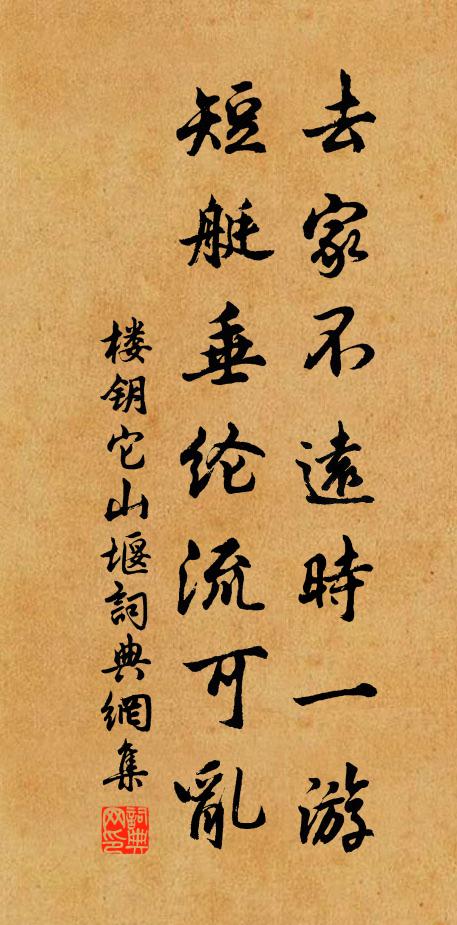 去家不遠時一游
短艇垂纶流可亂
楼钥它山堰詞典網集
詞典網印